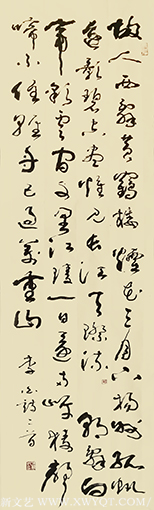 故人西辭黃鶴樓煙花三月下揚州孤帆
遠影碧空盡惟見長江天際流 朝辭白
帝彩雲間千里江陵一日還兩岸猿聲
啼不住輕舟已過萬重山
李白詩二首
文艺 WWW.XWYQT.COM